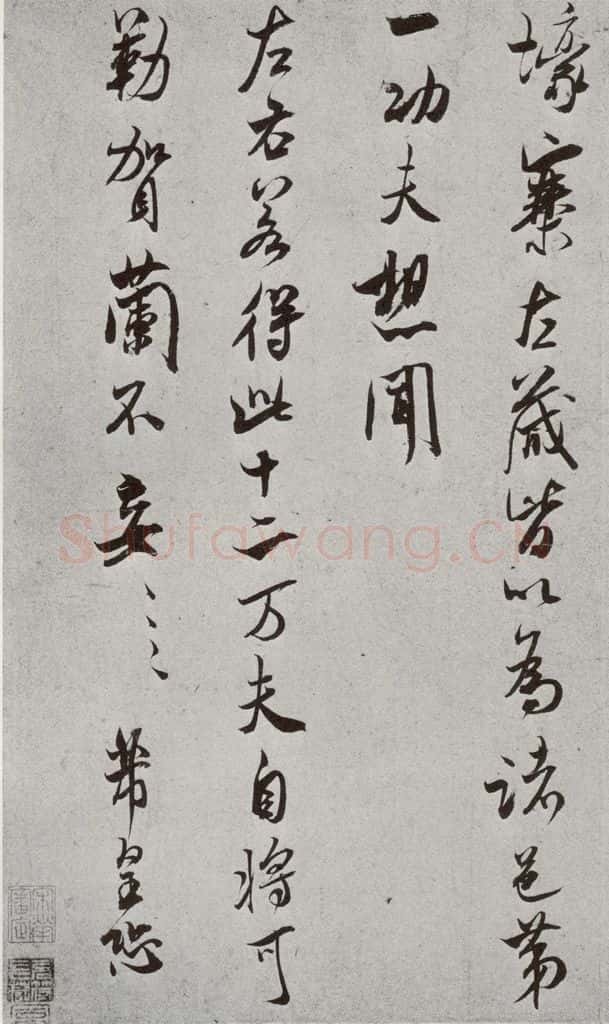 壕寨左藏皆以為諸邑第
一功夫想聞
左右若得此十二万夫自將可
勒賀蘭不妄〻〻
芾皇恐
Shufawang.CN